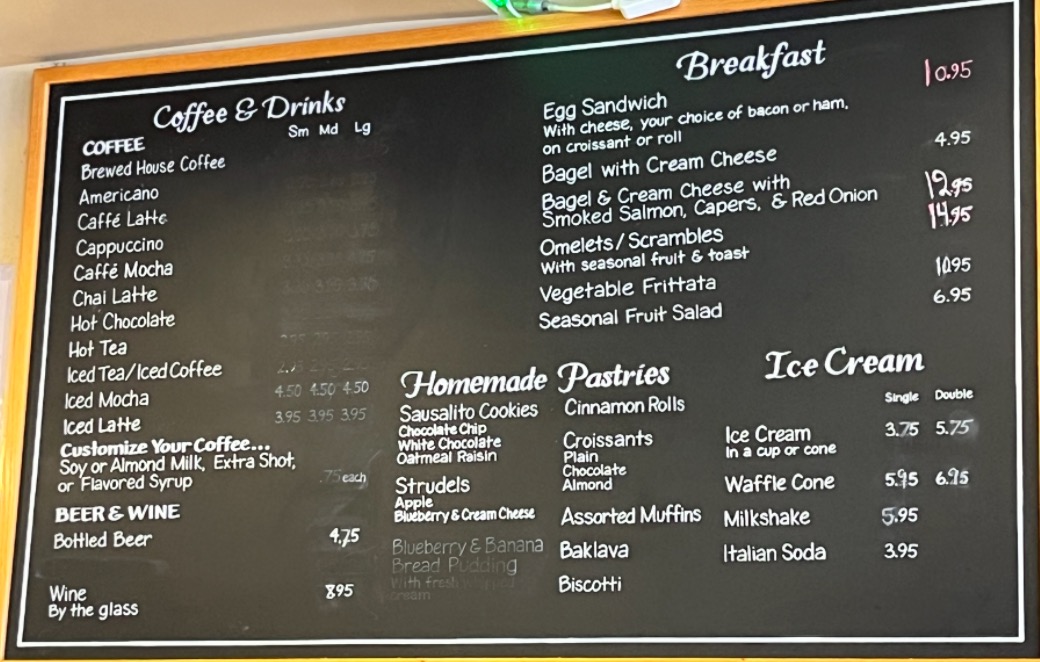 Coffee & Drinks
Sm Md Lg
COFFEE
Brewed House Coffee
Americano
Caffé Latte
Cappuccino
Caffé Mocha
Chai Latte
Hot Chocolate
Hot Tea
Iced Tea/Iced Coffee
Iced Mocha 4.50 4.50 4.50
Iced Latte 3.95 3.95 3.95
Customize Your Coffee...
Soy or Almond Milk, Extra Shot,
or Flavored Syrup .75 each
BEER & WINE
Bottled Beer 4.75
Wine 8.95
By the glass
Breakfast
Egg Sandwich 10.95
With cheese, your choice of bacon or ham,
on croissant or roll
Bagel with Cream Cheese 4.95
Bagel & Cream Cheese with
Smoked Salmon, Capers, & Red Onion 12.95
Omelets/Scrambles 14.95
With seasonal fruit & toast
Vegetable Frittata 10.95
Seasonal Fruit Salad 6.95
Homemade Pastries
Sausalito Cookies
Chocolate Chip
White Chocolate
Oatmeal Raisin
Strudels
Apple
Blueberry & Cream Cheese
Blueberry & Banana
Bread Pudding
With fresh whipped
cream
Cinnamon Rolls
Croissants
Plain
Chocolate
Almond
Assorted Muffins
Baklava
Biscotti
Ice Cream
Single Double
Ice Cream 3.75 5.75
In a cup or cone
Waffle Cone 5.95 6.95
Milkshake 5.95
Italian Soda 3.95